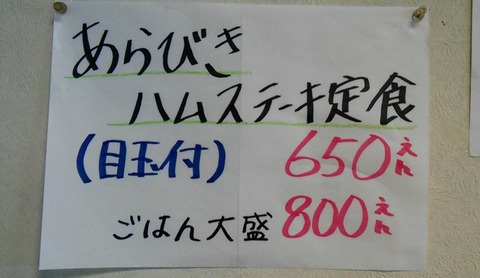 あらびき
ハムステーキ定食
(目玉付) 650えん
ごはん大盛 800えん